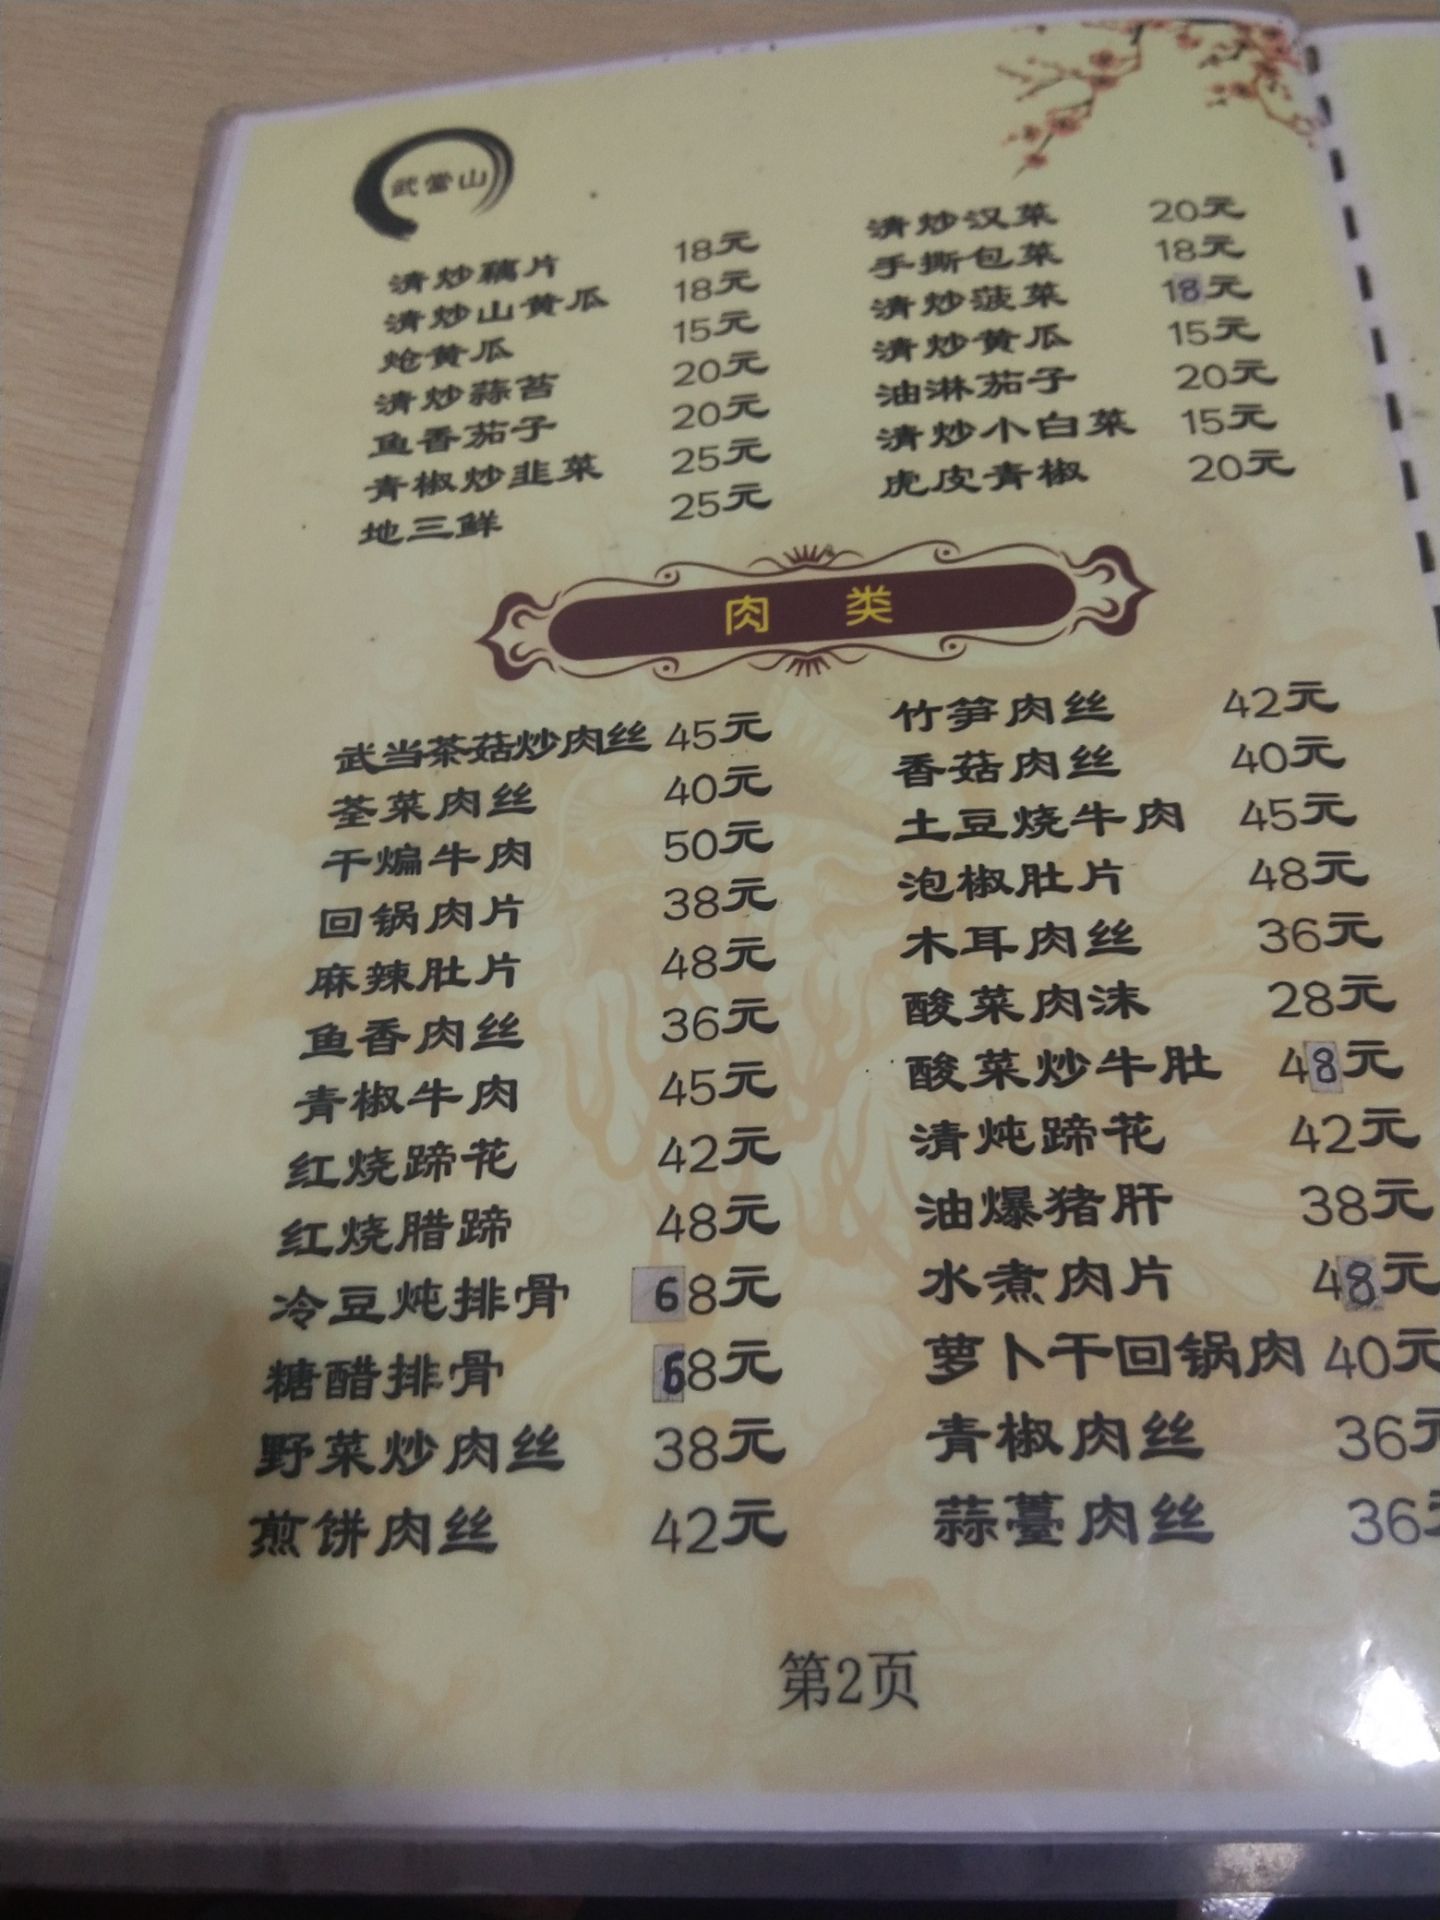 武當山
清炒藕片 18元
清炒山黄瓜 18元
炝黄瓜 15元
清炒蒜苔 20元
鱼香茄子 20元
青椒炒韭菜 25元
地三鲜 25元
清炒汉菜 20元
手撕包菜 18元
清炒菠菜 18元
清炒黄瓜 15元
油淋茄子 20元
清炒小白菜 15元
虎皮青椒 20元
肉 类
武当茶菇炒肉丝 45元
荃菜肉丝 40元
干煸牛肉 50元
回锅肉片 38元
麻辣肚片 48元
鱼香肉丝 36元
青椒牛肉 45元
红烧蹄花 42元
红烧腊蹄 48元
冷豆炖排骨 68元
糖醋排骨 68元
野菜炒肉丝 38元
煎饼肉丝 42元
竹笋肉丝 42元
香菇肉丝 40元
土豆烧牛肉 45元
泡椒肚片 48元
木耳肉丝 36元
酸菜肉沫 28元
酸菜炒牛肚 48元
清炖蹄花 42元
油爆猪肝 38元
水煮肉片 48元
萝卜干回锅肉 40元
青椒肉丝 36元
蒜薹肉丝 36元
第2页